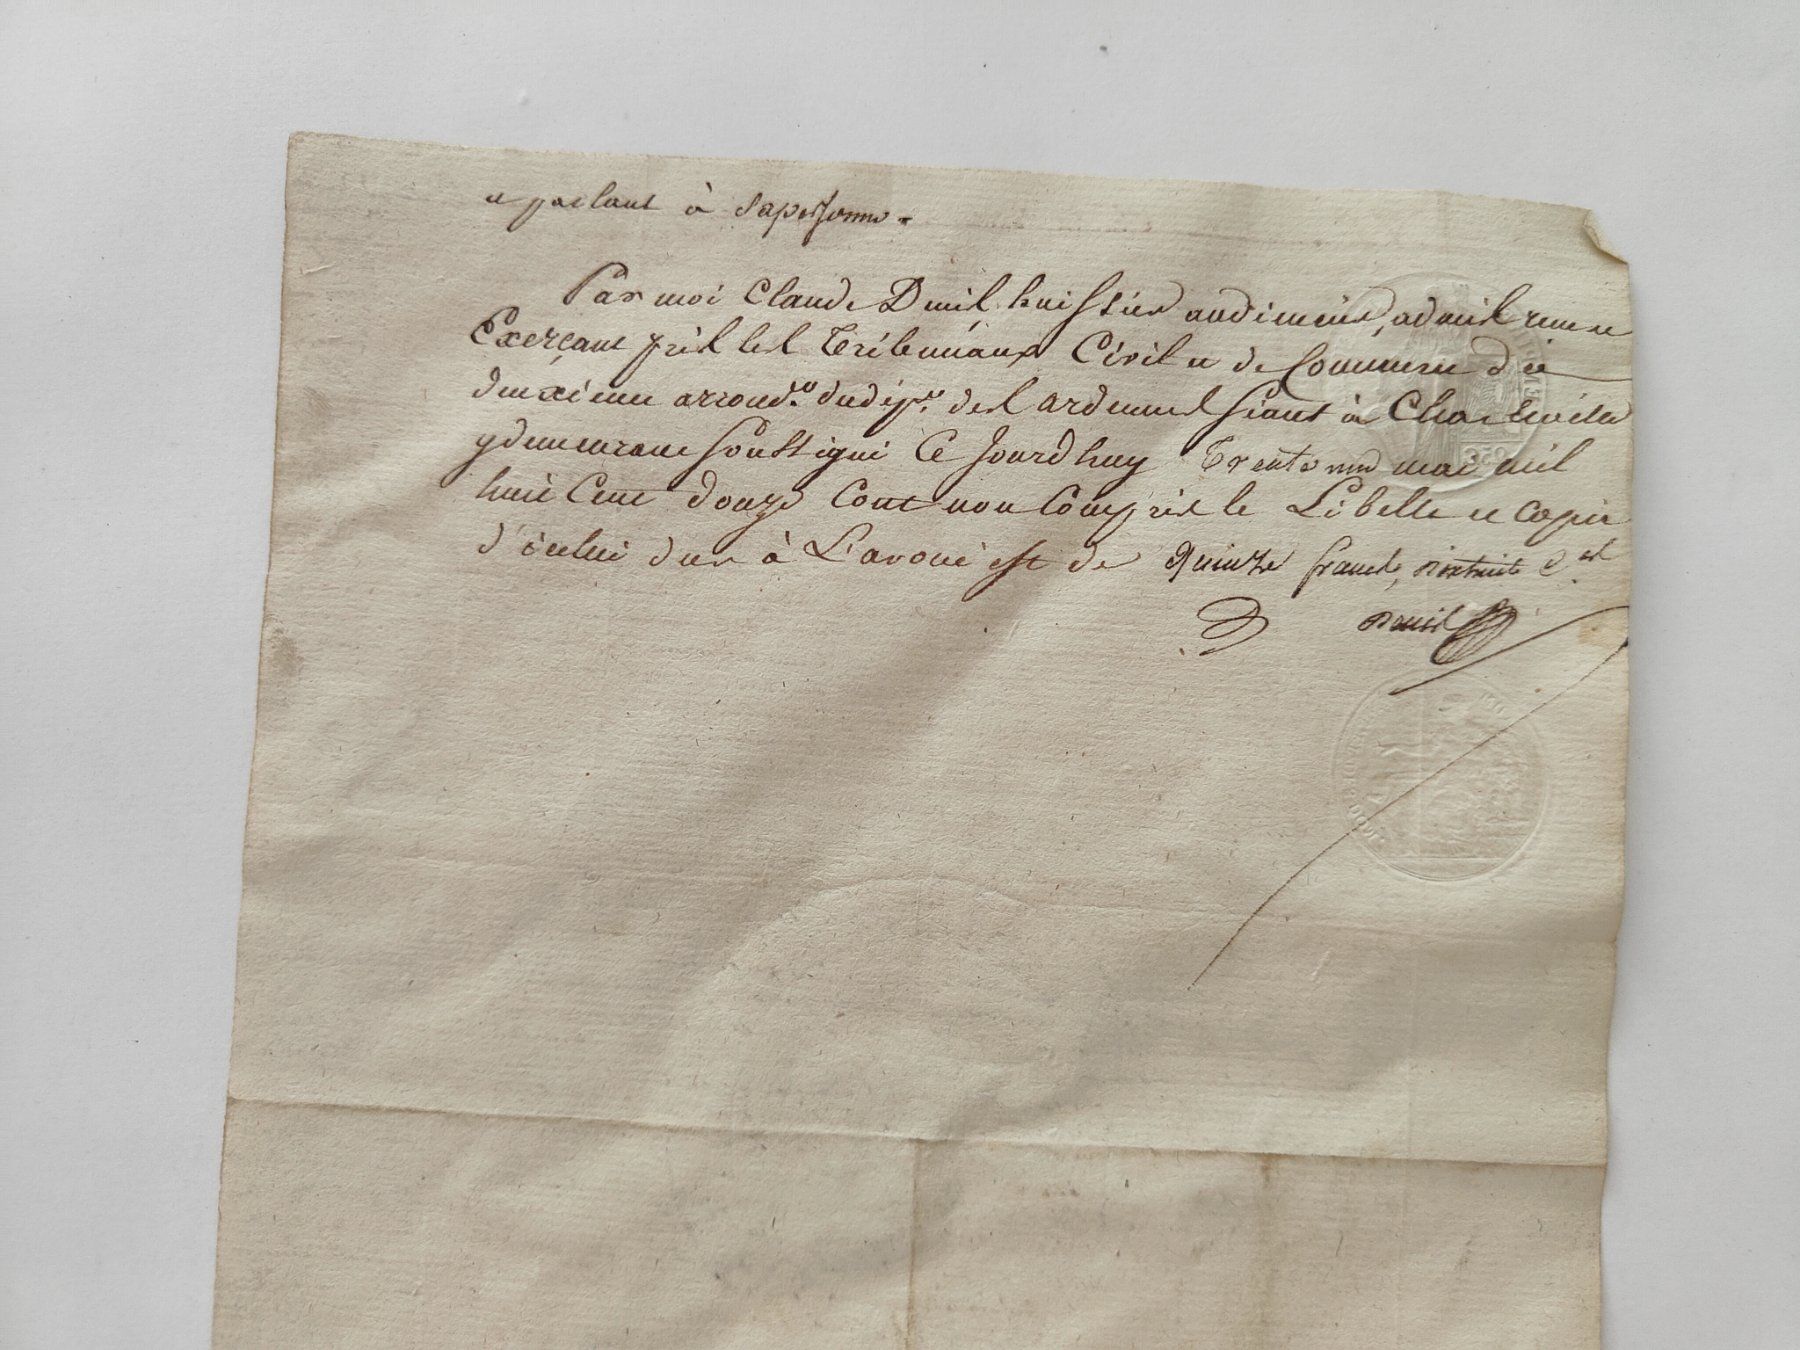 et parlant à sapersonne.
Par moi Claude Denis huissier audiencier, admis reçu et
Exerçant près les Tribunaux Civil et de Commerce du
deuxieme arrond. dudép. des ardennes séant à Charleville
ydemeurant soussigné Ce Jourdhuy Trente mai mil
huit Cent douze Cout non Compris le Libellé et copie
d'icelui dus à L'avoué est de quinze francs, c.es
Denis